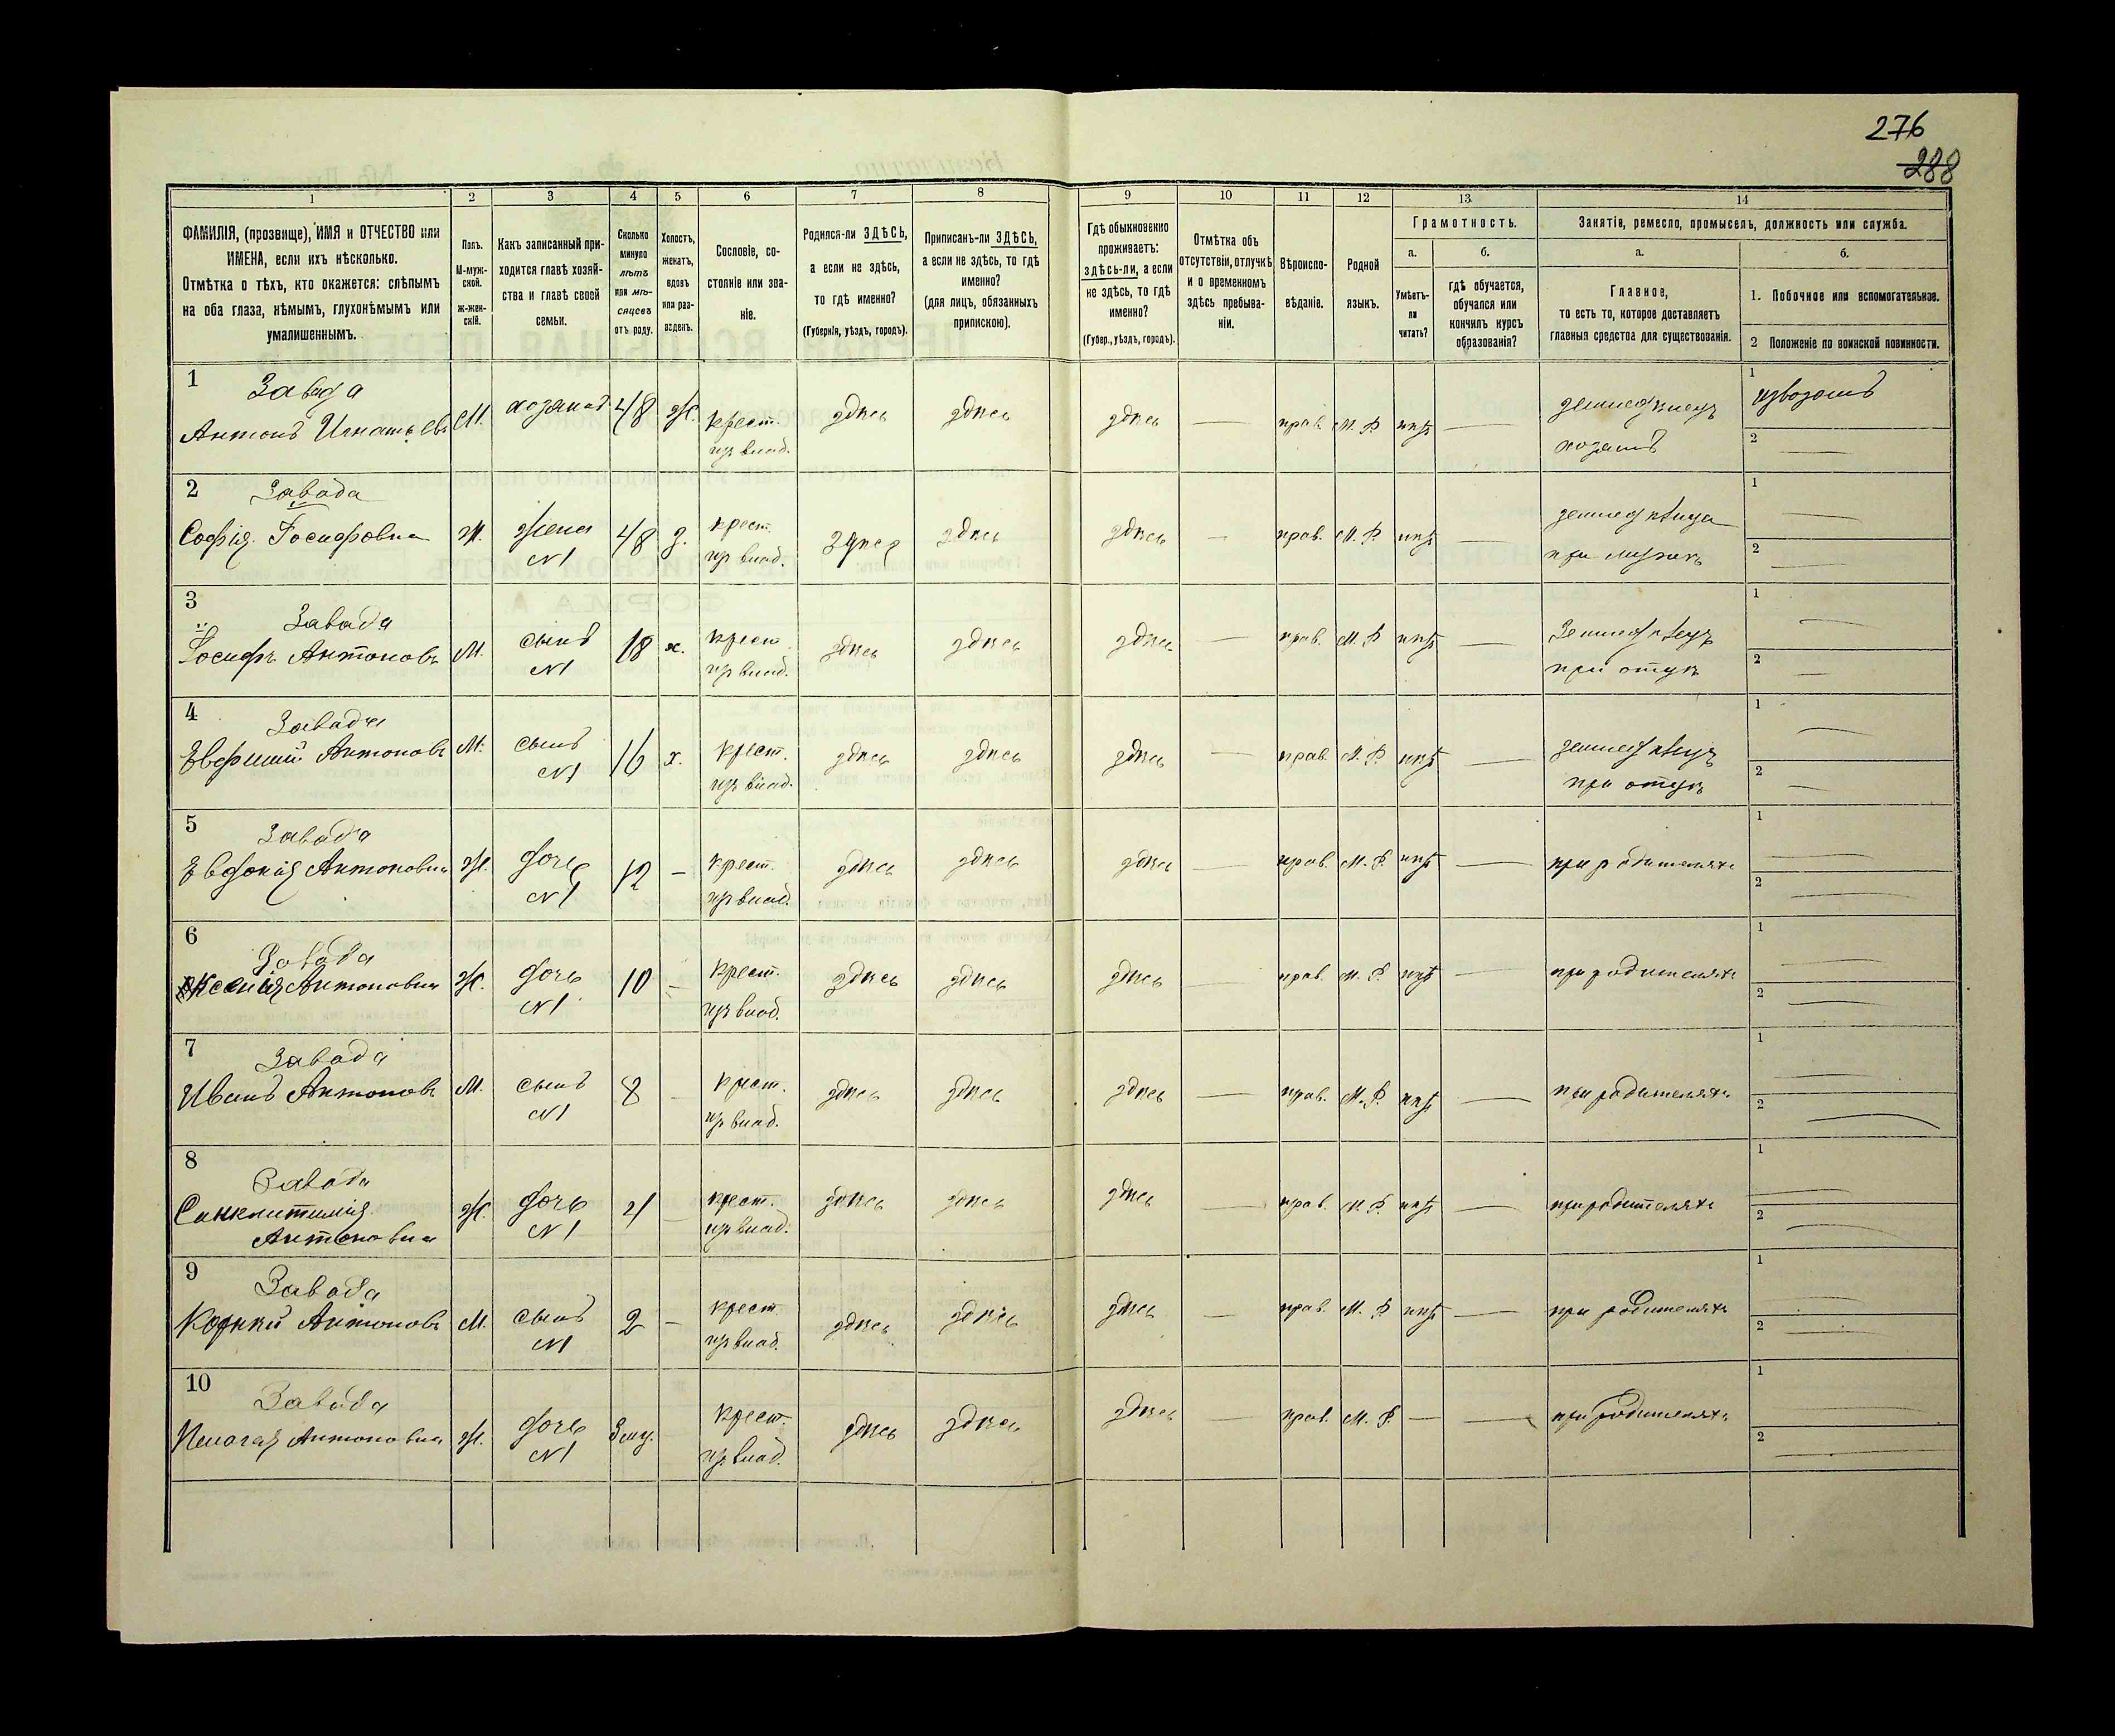 276
288
1 2 3 4 5 6 7 8 9 10 11 12 13 14
ФАМИЛІЯ, (прозвище), ИМЯ и ОТЧЕСТВО или
ИМЕНА, если ихъ нѣсколько.
Отмѣтка о тѣхъ, кто окажется: слѣпымъ
на оба глаза, нѣмымъ, глухонѣмымъ или
умалишеннымъ.
Полъ.
М-муж-
ской.
ж-жен-
скій.
Какъ записанный при-
ходится главѣ хозяй-
ства и главѣ своей
семьи.
Сколько
минуло
лѣтъ
или мѣ-
сяцевъ
отъ роду.
Холостъ,
женатъ,
вдовъ
или раз-
веденъ.
Сословіе, со-
стояніе или зва-
ніе.
Родился-ли ЗДѢСЬ,
а если не здѣсь,
то гдѣ именно?
(Губернія, уѣздъ, городъ).
Приписанъ-ли ЗДѢСЬ,
а если не здѣсь, то гдѣ
именно?
(для лицъ, обязанныхъ
припискою).
Гдѣ обыкновенно
проживаетъ:
здѣсь-ли, а если
не здѣсь, то гдѣ
именно?
(Губер., уѣздъ, городъ).
Отмѣтка объ
отсутствіи, отлучкѣ
и о временномъ
здѣсь пребыва-
ніи.
Вѣроиспо-
вѣданіе.
Родной
языкъ.
Грамотность.
а.
Умѣетъ-
ли
читать?
б.
гдѣ обучается,
обучался или
кончилъ курсъ
образованія?
Занятія, ремесло, промыселъ, должность или служба.
а.
Главное,
то есть то, которое доставляетъ
главныя средства для существованія.
б.
1. Побочное или вспомогательное.
2 Положеніе по воинской повинности.
1 Завада
Антонъ Игнатьевъ М. хозяинъ 48 ж. крест. из влад. здѣсь здѣсь здѣсь — прав. М. Р. нѣтъ — земледѣлецъ хозяинъ 1 извозомъ 2 —
2 Завада
Софія Іосифовна Ж. жена N1 48 з. крест. из влад. здѣсь здѣсь здѣсь — прав. М. Р. нѣтъ — земледѣлица при мужѣ 1 — 2 —
3 Завада
Іосифъ Антоновъ М. сынъ N1 18 х. крест. из влад. здѣсь здѣсь здѣсь — прав. М. Р. нѣтъ — Земледѣлецъ при отцѣ 1 — 2 —
4 Завада
Евфимій Антоновъ М. сынъ N1 16 х. крест. из влад. здѣсь здѣсь здѣсь — прав. М. Р. нѣтъ — земледѣлецъ при отцѣ 1 — 2 —
5 Завада
Евдокія Антоновна Ж. дочь N1 12 — крест. из влад. здѣсь здѣсь здѣсь — прав. М. Р. нѣтъ — при родителяхъ 1 — 2 —
6 Завада
Ксенія Антоновна Ж. дочь N1 10 — крест. из влад. здѣсь здѣсь здѣсь — прав. М. Р. нѣтъ — при родителяхъ 1 — 2 —
7 Завада
Иванъ Антоновъ М. сынъ N1 8 — крест. из влад. здѣсь здѣсь здѣсь — прав. М. Р. нѣтъ — при родителяхъ 1 2 —
8 Завада
Санклитикія
Антоновна Ж. дочь N1 — крест. из влад. здѣсь здѣсь здѣсь — прав. М. Р. нѣтъ — при родителяхъ 1 — 2 —
9 Завада
Антоновъ М. сынъ N1 2 — крест. из влад. здѣсь здѣсь здѣсь — прав. М. Р. нѣтъ — при родителяхъ 1 — 2 —
10 Завада
Пелагея Антоновна Ж. дочь N1 крест. из влад. здѣсь здѣсь здѣсь — прав. М. Р. — — при родителяхъ 1 — 2 —